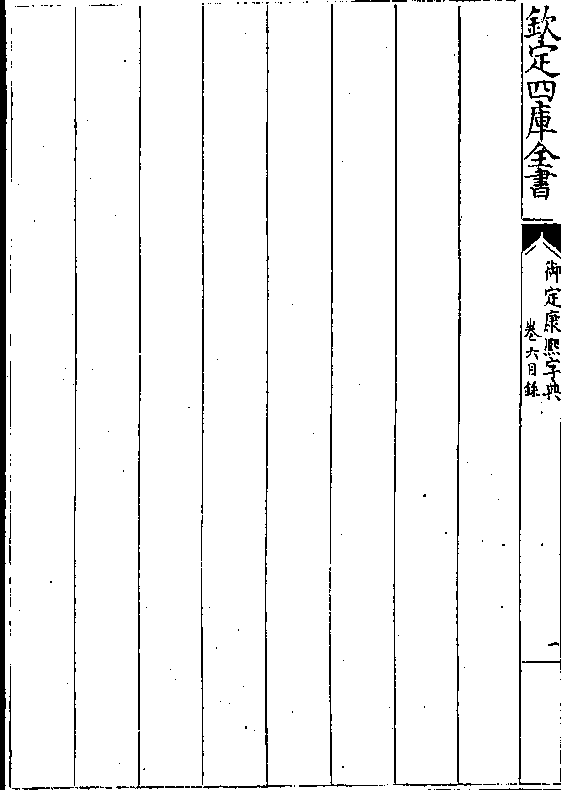 欽定四庫全書
御定康熙字典
卷六目錄
一